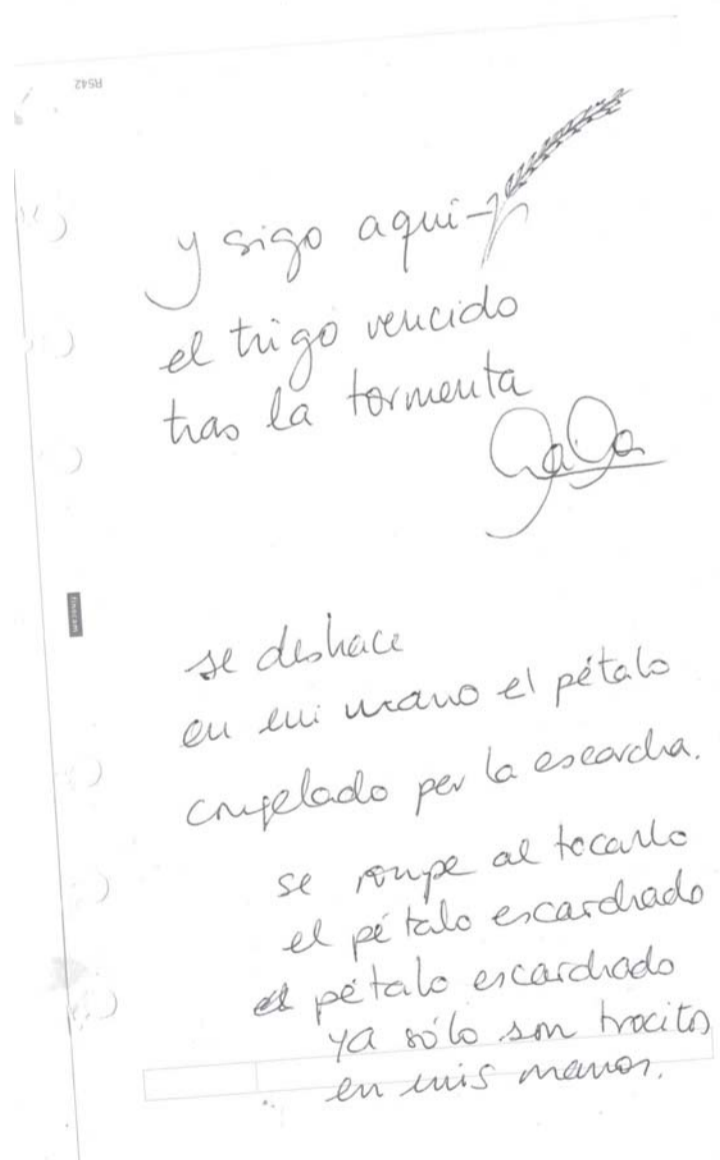 R542
y sigo aquí-
el trigo vencido
tras la tormenta
GaGa
finocam
se deshace
en mi mano el pétalo
congelado por la escarcha.
se rompe al tocarlo
el pétalo escarchado
el pétalo escarchado
ya sólo son trocitos
en mis manos.